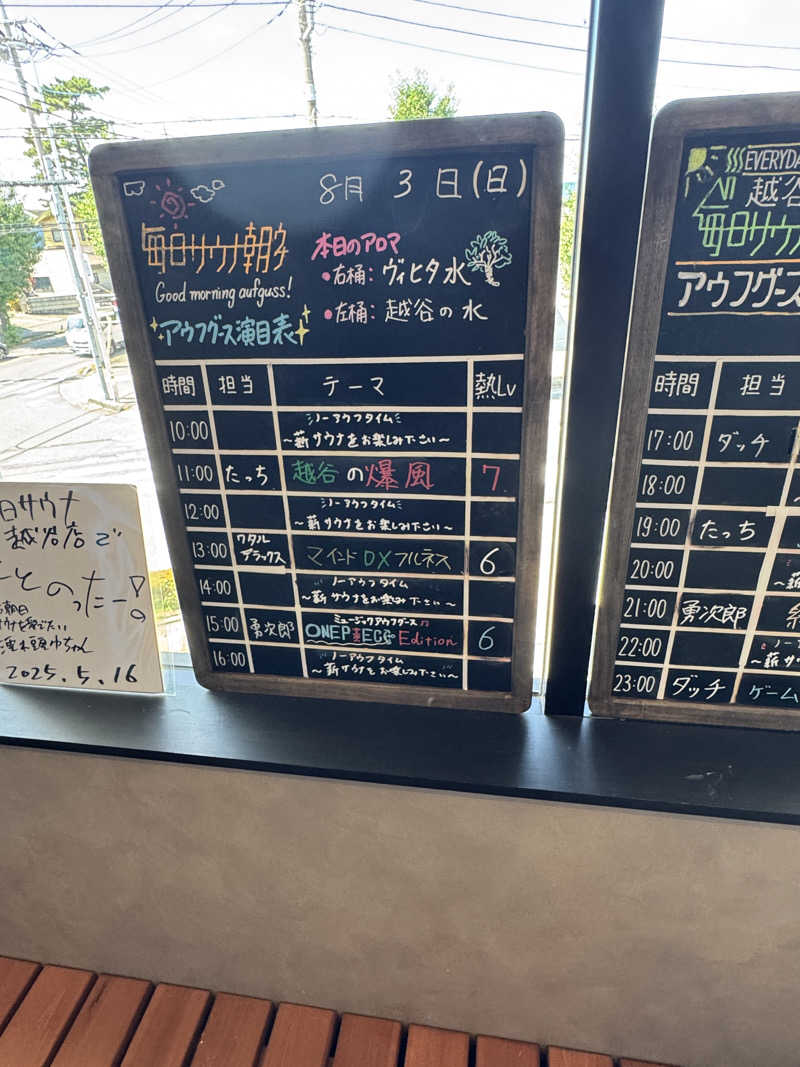 8月 3日(日)
毎日サウナ朝
Good morning aufguss!
アウフグース演目表
本日のアロマ
●右桶: ヴィヒタ水
●左桶: 越谷の水
時間 担当 テーマ 熱Lv
10:00 ノーアウフタイム
〜薪サウナをお楽しみ下さい〜
11:00 たっち 越谷の爆風 7
12:00 ノーアウフタイム
〜薪サウナをお楽しみ下さい〜
13:00 ワタルデラックス マインドDXフルネス 6
14:00 ノーアウフタイム
〜薪サウナをお楽しみ下さい〜
15:00 勇次郎 ミュージックアウフグース♫
Edition 6
16:00 ノーアウフタイム
〜薪サウナをお楽しみ下さい〜
EVERYDA
越谷
毎日サウナ
アウフグース
時間 担当
17:00 ダッチ
18:00
19:00 たっち
20:00
21:00 勇次郎
22:00
23:00 ダッチ ゲーム
日サウナ
越谷店で
とのったー!
2025.5.16